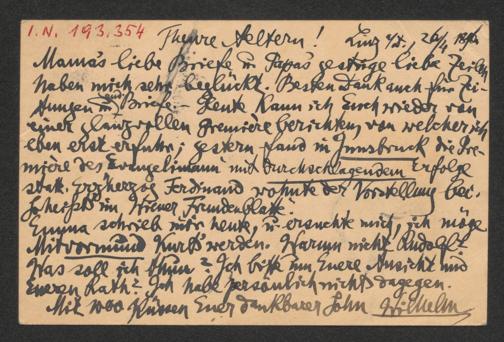 I.N. 193.354
Theure Aeltern! Linz a/D., 26/4 1896
Mama's liebe Briefe u Papas gestrige liebe Zeilen
haben mich sehr beglückt. Besten Dank auch für Zei-
tungen und Briefe - Heute kann ich Euch wieder von
einer glanzvollen Première berichten, von welcher ich
eben erst erfuhr; gestern fand in Innsbruck die Pre-
mière des Evangelimann mit durchschlagendem Erfolge
statt. Erzherzog Ferdinand wohnte der Vorstellung bei.
So heißt's im Wiener Fremdenblatt.
Emma schrieb mir heute, u. ersuchte mich, ich möge
Mitvormund Kurts werden. Warum nicht Rudolf?
Was soll ich thun? Ich bitte um Euere Ansicht und
Eueren Rath? Ich habe persönlich nichts dagegen.
Mit 1000 Küssen Euer dankbarer Sohn Wilhelm